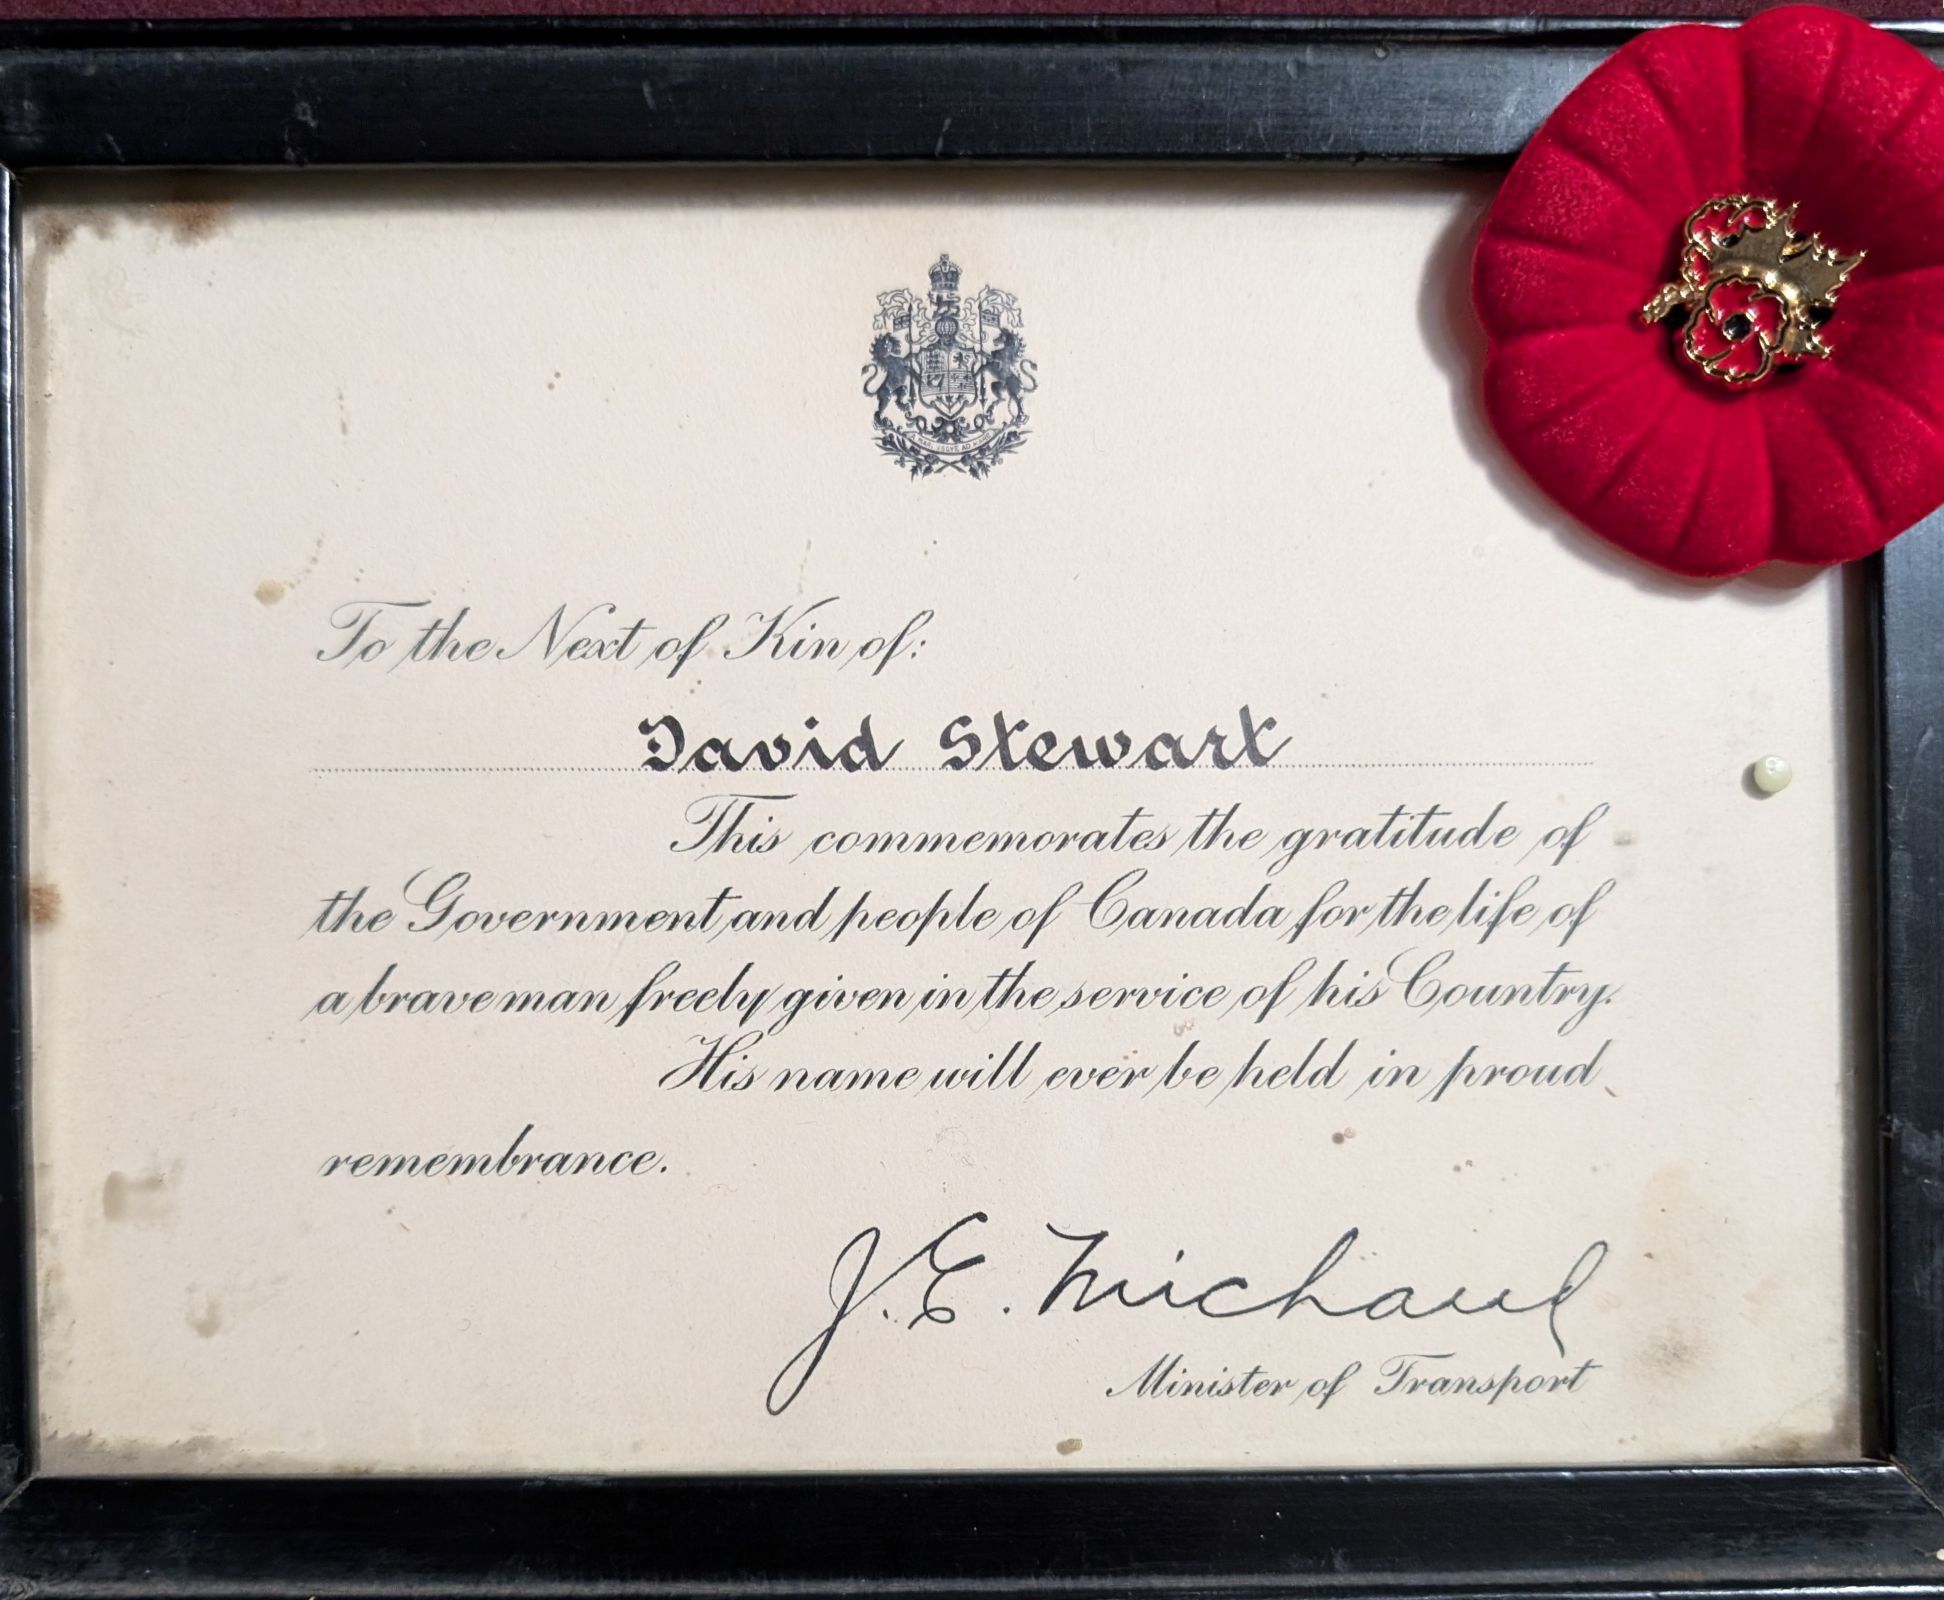 To the Next of Kin of:
David Stewart
This commemorates the gratitude of
the Government and people of Canada for the life of
a brave man freely given in the service of his Country.
His name will ever be held in proud
remembrance.
J. E. Michaud
Minister of Transport